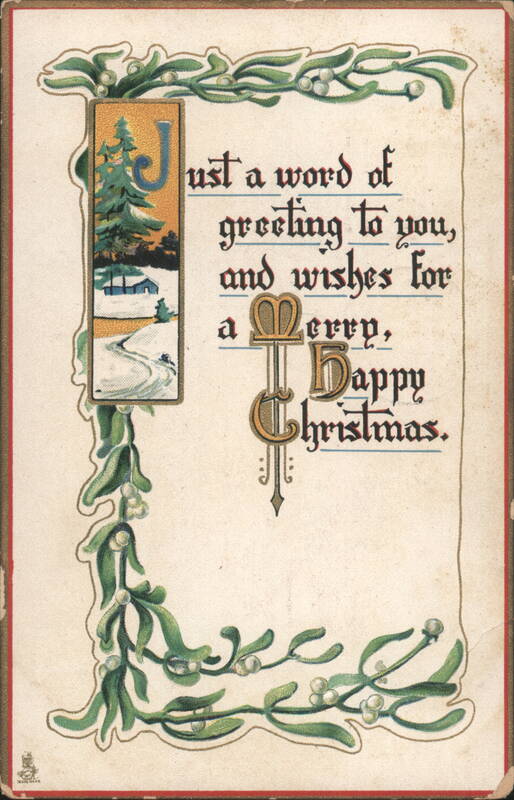 Just a word of
greeting to you,
and wishes for
a Merry,
Happy
Christmas.